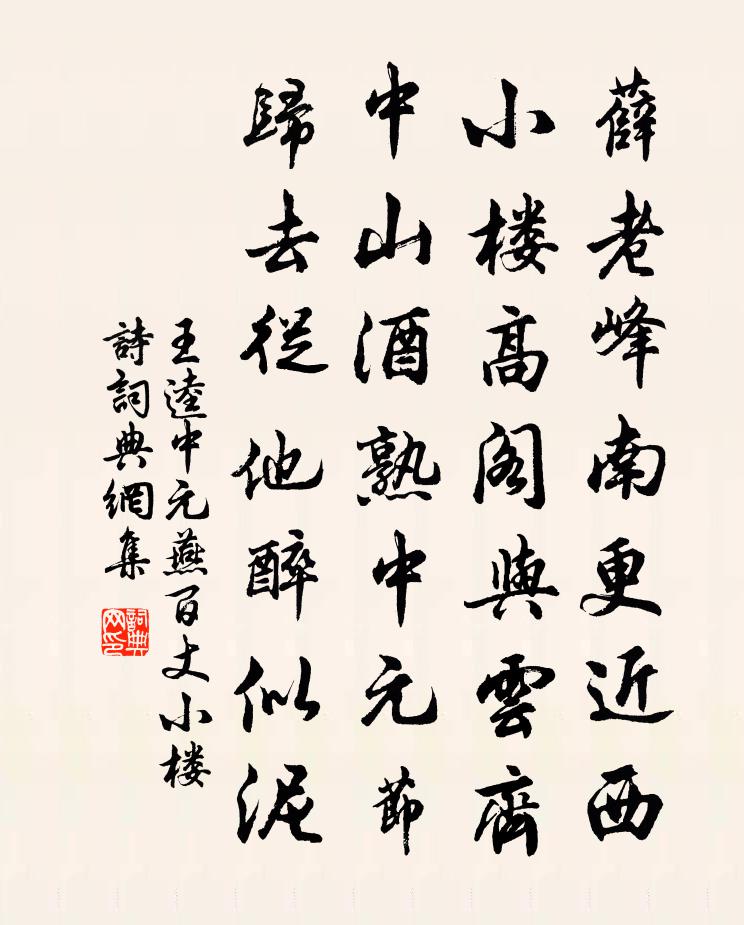 薛老峰南更近西
小楼高阁與雲齊
中山酒熟中元節
歸去從他醉似泥
王逵中元燕百丈小楼
詩詞典網集
詞典网印